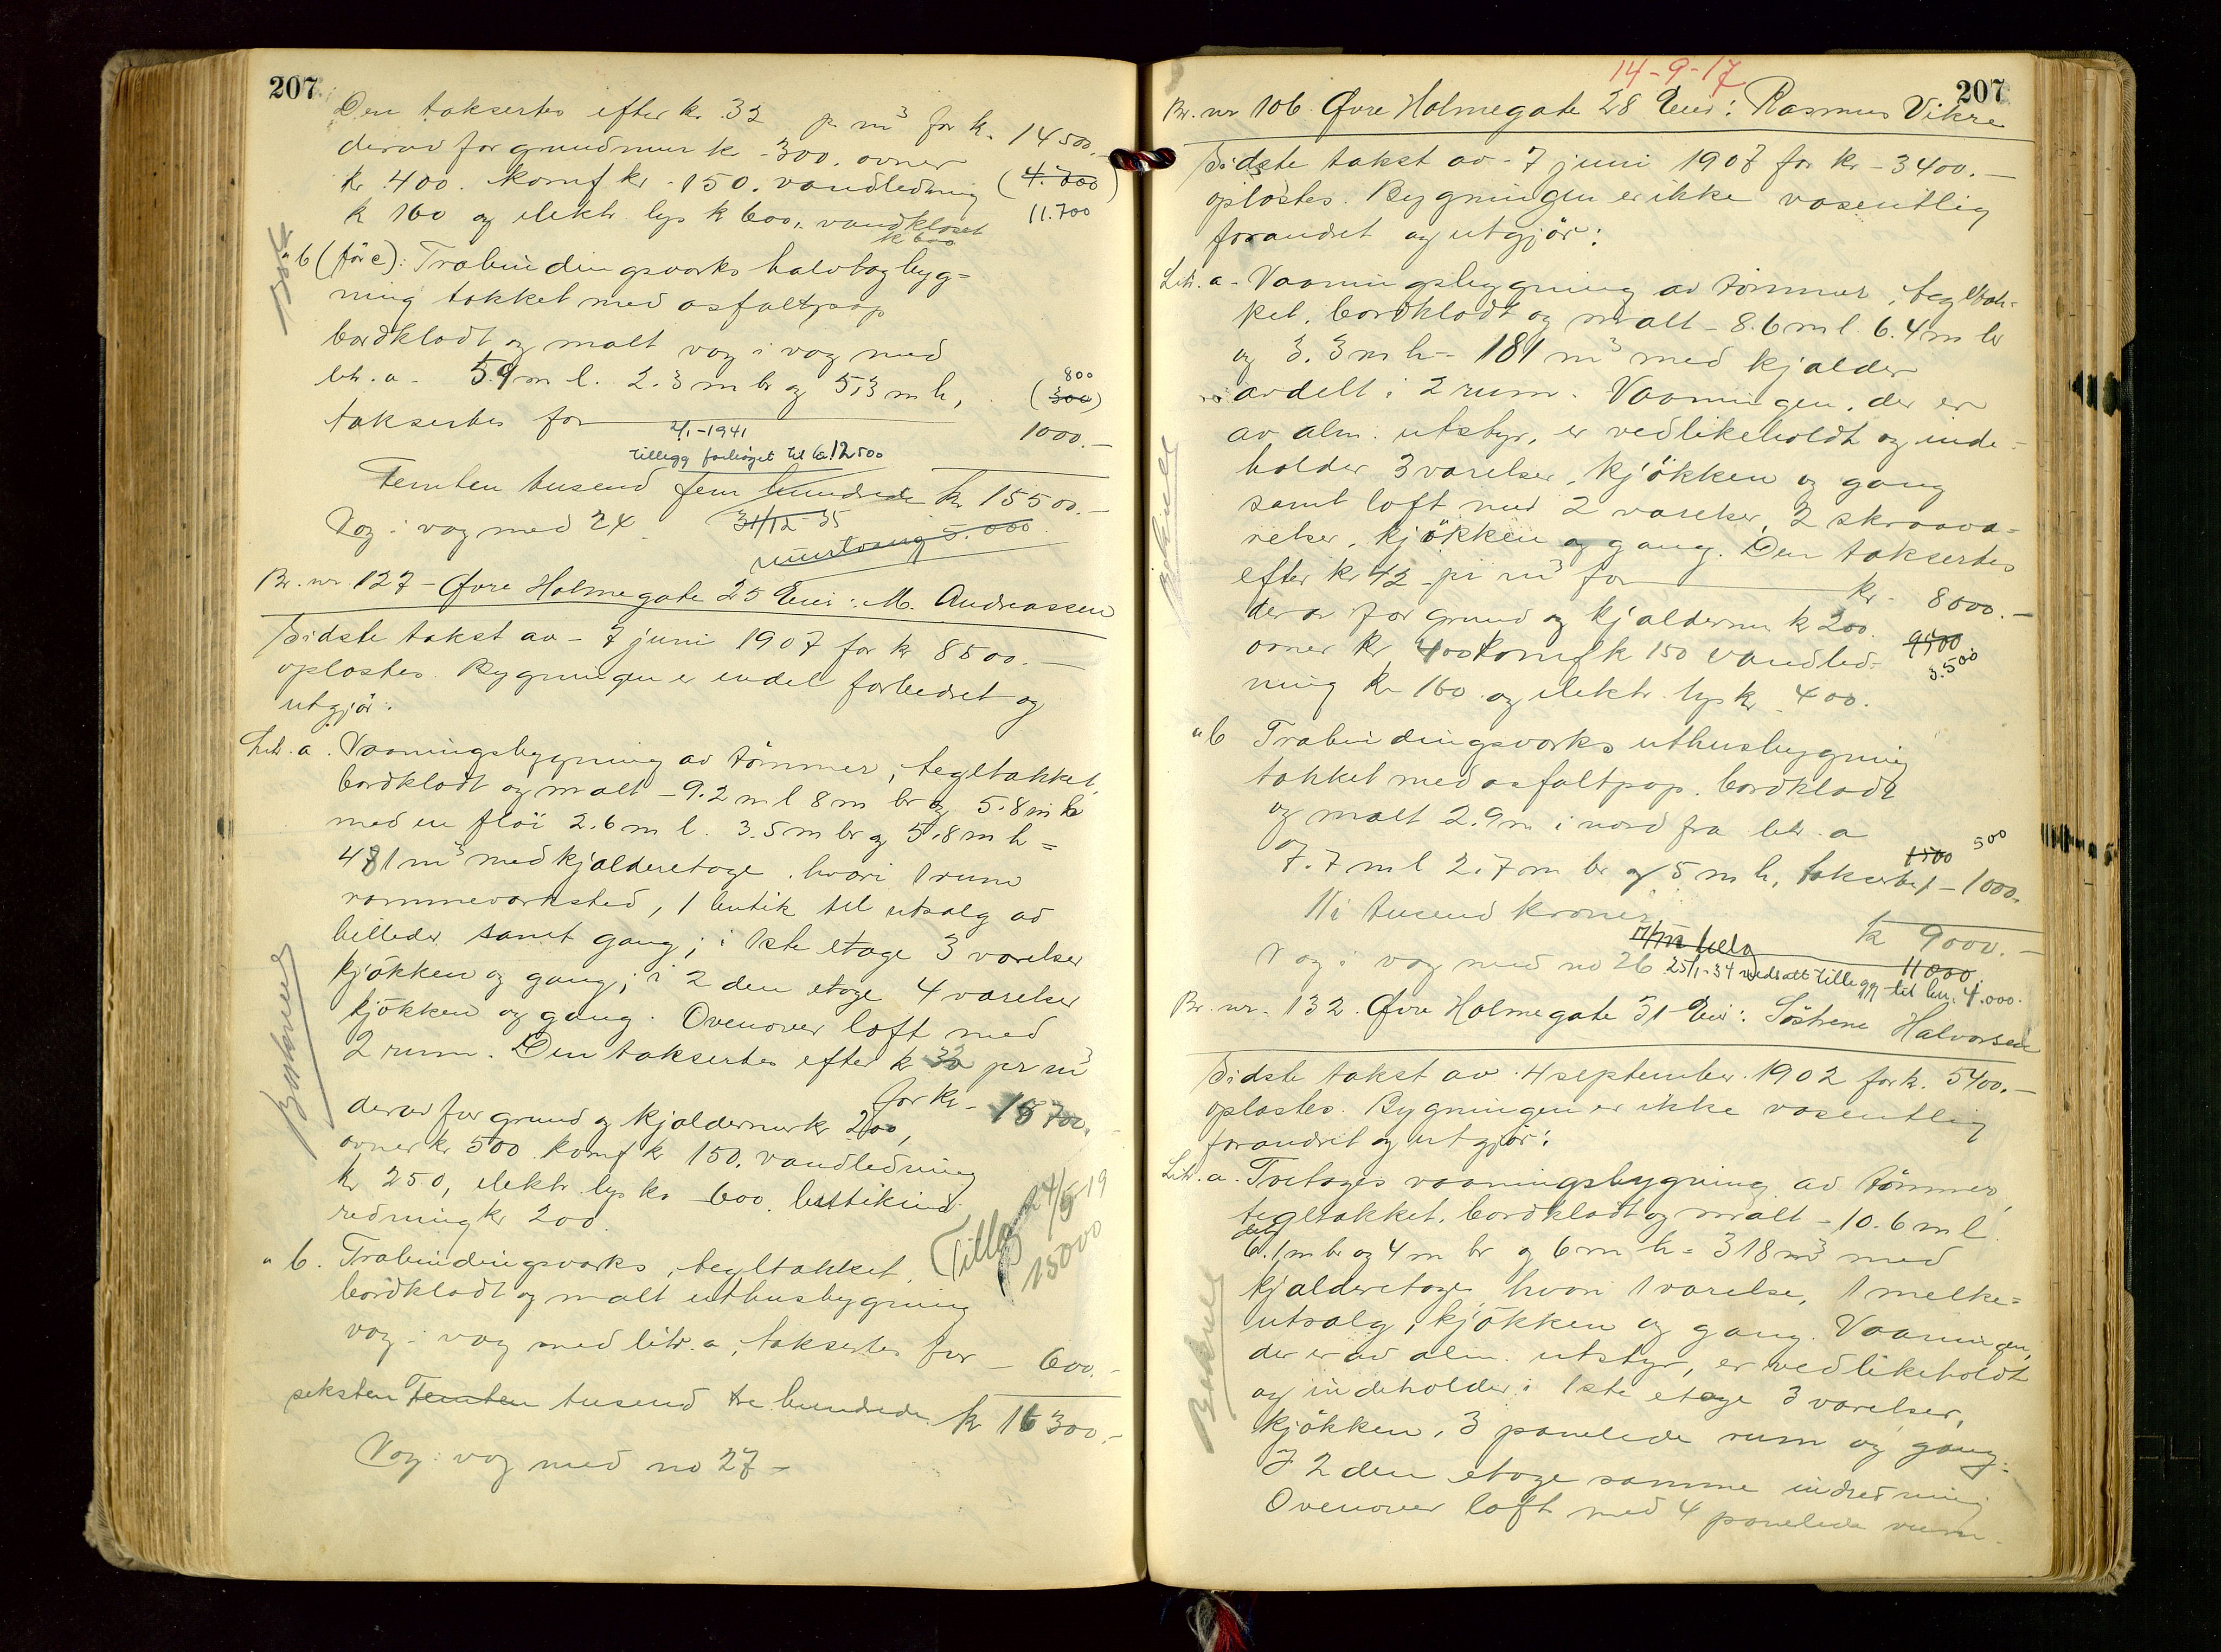 207
Den taksertes efter kr. 32 pr m³ for kr. 14500.-
derav for grundmur kr. 300. ovner
kr. 400. komf kr. 150. vandledning (4.700)
k 160 og elektr. lys k 600,. vandkloset 11.700
k 600
"b (för c): Træbindingsværks halvtagbyg=
ning tækket med asfaltpap
bordklædt og malt væg i væg med
litr. a. 5.9 m l. 2.3 m br og 5,3 m h, 800
(300)
taksertes for 1000.-
2/1-1941
tillegg forhöiet til kr 12500
Femten tusend fem hundrede kr 15500.-
Væg i væg med 24. 31/12-35
5.000
Br. nr. 127 - Øvre Holmegate 25 Eier: M. Andreassen
Sidste takst av - 7 juni 1907 for kr 8500.-
oplæstes. Bygningen er endel forbedret og
utgjør:
Litr. a. Vaaningsbygning av tömmer, tegltækket,
bordklædt og malt - 9.2 m l 8 m br og 5.8 m h
med en flöi 2.6 m l. 3.5 m br og 5.8 m h =
481 m³ med kjælderetage, hvori 1 rum
rammeværksted, 1 butik til utsalg av
billeder samt gang; i 1ste etage 3 værelser
kjökken og gang; i 2 den etage 4 værelser
kjökken og gang. Ovenover loft med
2 rum. Den taksertes efter k 32 pr m³
for kr - 15700.
derav for grund og kjældermur kr 200,
ovner kr 500 komf kr 150. vandledning
kr 250, elektr. lys kr 600. buttikind
redning kr 200.
Tillæg 24/5-19
15000
" b. Træbindingsværks, tegltækket,
bordklædt og malt uthusbygning
væg i væg med litr. a, taksertes for - 600.-
seksten Femten tusend tre hundrede kr 16300.-
Væg i væg med no 27 -
14-9-17
207
Br. nr 106 Øvre Holmegate 28 Eier: Rasmus Vikre
Sidste takst av - 7 juni 1907 for kr - 3400.-
oplæstes. Bygningen er ikke væsentlig
forandret og utgjör:
Litr. a. Vaaningsbygning av tömmer, tegltæk=
ket, bordklædt og malt - 8.6 m l 6.4 m br
og 3.3 m h - 181 m³ med kjælder
avdelt i 2 rum. Vaaningen, der er
av alm. utstyr, er vedlikeholdt og inde-
holder 3 værelser, kjökken og gang
samt loft med 2 værelser, 2 skraavæ=
relser, kjökken og gang. Den taksertes
efter kr 42 pr m³ for kr. 8000.-
derav for grund og kjældermur k 200.
ovner kr 400 komf k 150 vandled= 9500
3.500
ning kr 160 og elektr. lys kr 400.
"b Træbindingsværks uthusbygning
tækket med asfaltpap, bordklædt
og malt 2.9 m i nord fra litr. a
1500 500
7.7 m l 2.7 m br og 5 m h, taksert f - 1000.
Ni tusend kroner k 9000.-
11000
Væg i væg med no 26 25/1-34 nedsatt tillegg til kr. 4.000.
Br. nr. 132. Øvre Holmegate 31 Eier: Söstrene Halvorsen
Sidste takst av 4 september 1902 for k. 5400.-
oplæstes. Bygningen er ikke væsentlig
forandret og utgjör:
Litr. a. Toetages vaaningsbygning av tömmer,
tegltækket, bordklædt og malt - 10.6 m l
6.1 m br og 4 m br og 6 m h = 318 m³ med
kjælderetage hvori 1 værelse, 1 melke=
utsalg, kjökken og gang. Vaaningen,
der er av alm. utstyr, er vedlikeholdt
og indeholder i 1ste etage 3 værelser,
kjökken, 3 panelede rum og gang.
I 2 den etage samme indredning
Ovenover loft med 4 panelede rum